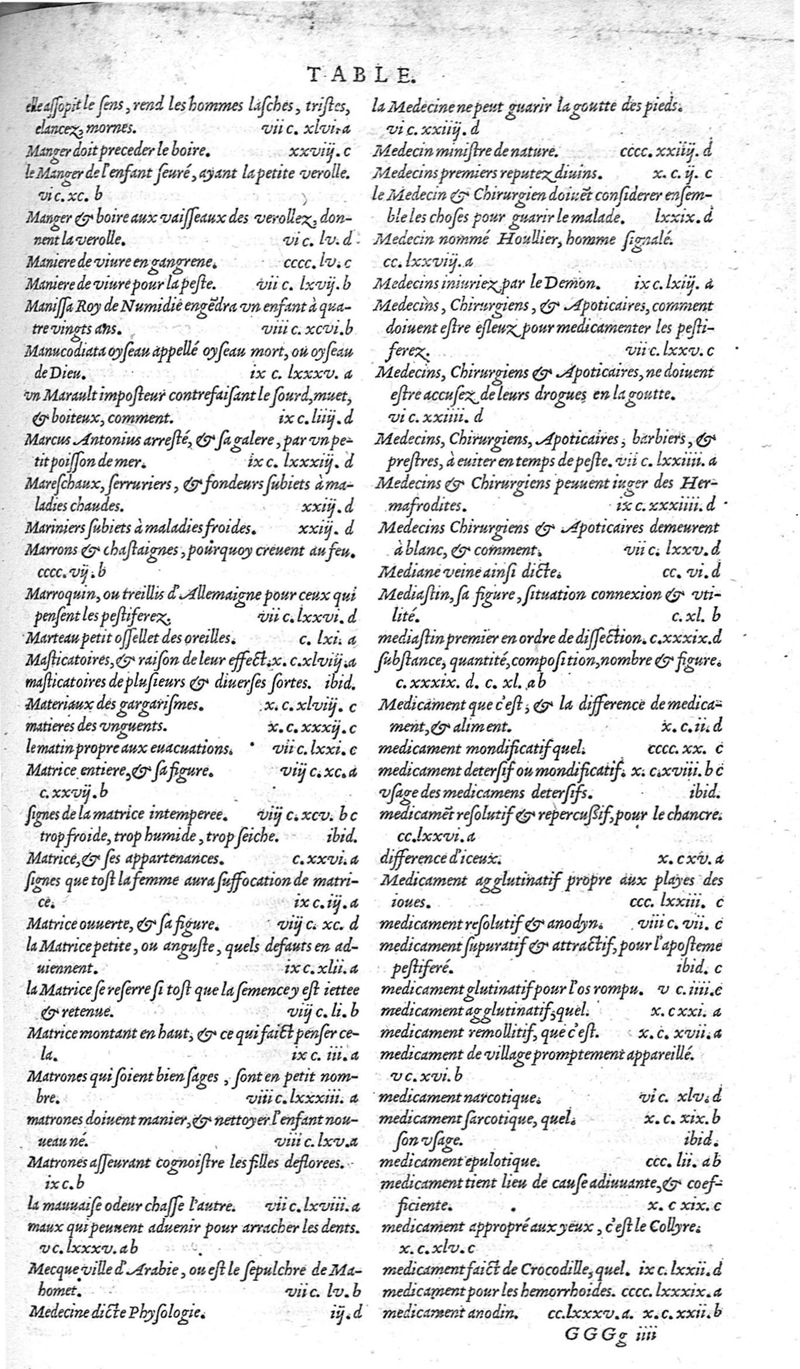 TABLE.
elle assopit le sens, rend les hommes lasches, tristes,
elancez, mornes. vii c. xlvi. a
Manger doit preceder le boire. xxviij. c
le Manger de l'enfant seuré, ayant la petite verolle.
vi c. xc. b
Manger & boire aux vaisseaux des verollez, don-
nent la verolle. vi c. lv. d
Maniere de viure en gangrene. cccc. lv. c
Maniere de viure pour la peste. vii c. lxvij. b
Manissa Roy de Numidie engẽdra vn enfant à qua-
tre vingts ans. viii c. xcvi. b
Manucodiata oyseau appellé oyseau mort, ou oyseau
de Dieu. ix c. lxxxv. a
vn Marault imposteur contrefaisant le sourd, muet,
& boiteux, comment. ix c. liiij. d
Marcus Antonius arresté, & sa galere, par vn pe-
tit poisson de mer. ix c. lxxxiij. d
Mareschaux, serruriers, & fondeurs subiets à ma-
ladies chaudes. xxiij. d
Mariniers subiets à maladies froides. xxiij. d
Marrons & chastaignes, pourquoy creuent au feu.
cccc. vij. b
Marroquin, ou treillis d'Allemaigne pour ceux qui
pensent les pestiferez. vii c. lxxvi. d
Marteau petit ossellet des oreilles. c. lxi. a
Masticatoires, & raison de leur effect. x. c. xlviij. a
masticatoires de plusieurs & diuerses sortes. ibid.
Materiaux des gargarismes. x. c. xlviij. c
matieres des vnguents. x. c. xxxij. c
le matin propre aux euacuations. vii c. lxxi. c
Matrice entiere, & sa figure. viij c. xc. a
c. xxvij. b
signes de la matrice intemperee. viij c. xcv. b c
trop froide, trop humide, trop seiche. ibid.
Matrice, & ses appartenances. c. xxvi. a
signes que tost la femme aura suffocation de matri-
ce. ix c. iij. a
Matrice ouuerte, & sa figure. viij c. xc. d
la Matrice petite, ou anguste, quels defauts en ad-
uiennent. ix c. xlii. a
la Matrice se reserre si tost que la semence y est iettee
& retenue. viij c. li. b
Matrice montant en haut, & ce qui faict penser ce-
la. ix c. iii. a
Matrones qui soient bien sages, sont en petit nom-
bre. viii c. lxxxiii. a
matrones doiuent manier, & nettoyer l'enfant nou-
ueau né. viii c. lxv. a
Matrones asseurant cognoistre les filles deflorees.
ix c. b
la mauuaise odeur chasse l'autre. vii c. lxviii. a
maux qui peuuent aduenir pour arracher les dents.
v c. lxxxv. a b
Mecque ville d'Arabie, ou est le sepulchre de Ma-
homet. vii c. lv. b
Medecine dicte Physologie. iij. d
la Medecine ne peut guarir la goutte des pieds.
vi c. xxiiij. d
Medecin ministre de nature. cccc. xxiiij. d
Medecins premiers reputez diuins. x. c. ij. c
le Medecin & Chirurgien doiuẽt considerer ensem-
ble les choses pour guarir le malade. lxxix. d
Medecin nommé Houllier, homme signalé.
cc. lxxviij. a
Medecins iniuriez par le Demon. ix c. lxiij. a
Medecins, Chirurgiens, & Apoticaires, comment
doiuent estre esleuz pour medicamenter les pesti-
ferez. vii c. lxxv. c
Medecins, Chirurgiens & Apoticaires, ne doiuent
estre accusez de leurs drogues en la goutte.
vi c. xxiiii. d
Medecins, Chirurgiens, Apoticaires, barbiers, &
prestres, à euiter en temps de peste. vii c. lxxiiii. a
Medecins & Chirurgiens peuuent iuger des Her-
mafrodites. ix c. xxxiiii. d
Medecins Chirurgiens & Apoticaires demeurent
à blanc, & comment. vii c. lxxv. d
Mediane veine ainsi dicte. cc. vi. d
Mediastin, sa figure, situation connexion & vti-
lité. c. xl. b
mediastin premier en ordre de dissection. c. xxxix. d
substance, quantité, composition, nombre & figure.
c. xxxix. d. c. xl. a b
Medicament que c'est, & la difference de medica-
ment, & aliment. x. c. ii. d
medicament mondificatif quel. cccc. xx. c
medicament detersif ou mondificatif. x. c. xviii. b c
vsage des medicamens detersifs. ibid.
medicamẽt resolutif & repercussif, pour le chancre.
cc. lxxvi. a
difference d'iceux. x. c xv. a
Medicament agglutinatif propre aux playes des
ioues. ccc. lxxiii. c
medicament resolutif & anodyn. viii c. vii. c
medicament supuratif & attractif, pour l'aposteme
pestiferé. ibid. c
medicament glutinatif pour l'os rompu. v c. iiii. c
medicament agglutinatif, quel. x. c xxi. a
medicament remollitif, que c'est. x. c. xvii. a
medicament de village promptement appareillé.
v c. xvi. b
medicament narcotique. vi c. xlv. d
medicament sarcotique, quel. x. c. xix. b
son vsage. ibid.
medicament epulotique. ccc. lii. a b
medicament tient lieu de cause adiuuante, & coef-
ficiente. x. c xix. c
medicament appropré aux yeux, c'est le Collyre.
x. c. xlv. c
medicament faict de Crocodille, quel. ix c. lxxii. d
medicament pour les hemorrhoides. cccc. lxxxix. a
medicament anodin. cc. lxxxv. a. x. c. xxii. b
GGGg iiii